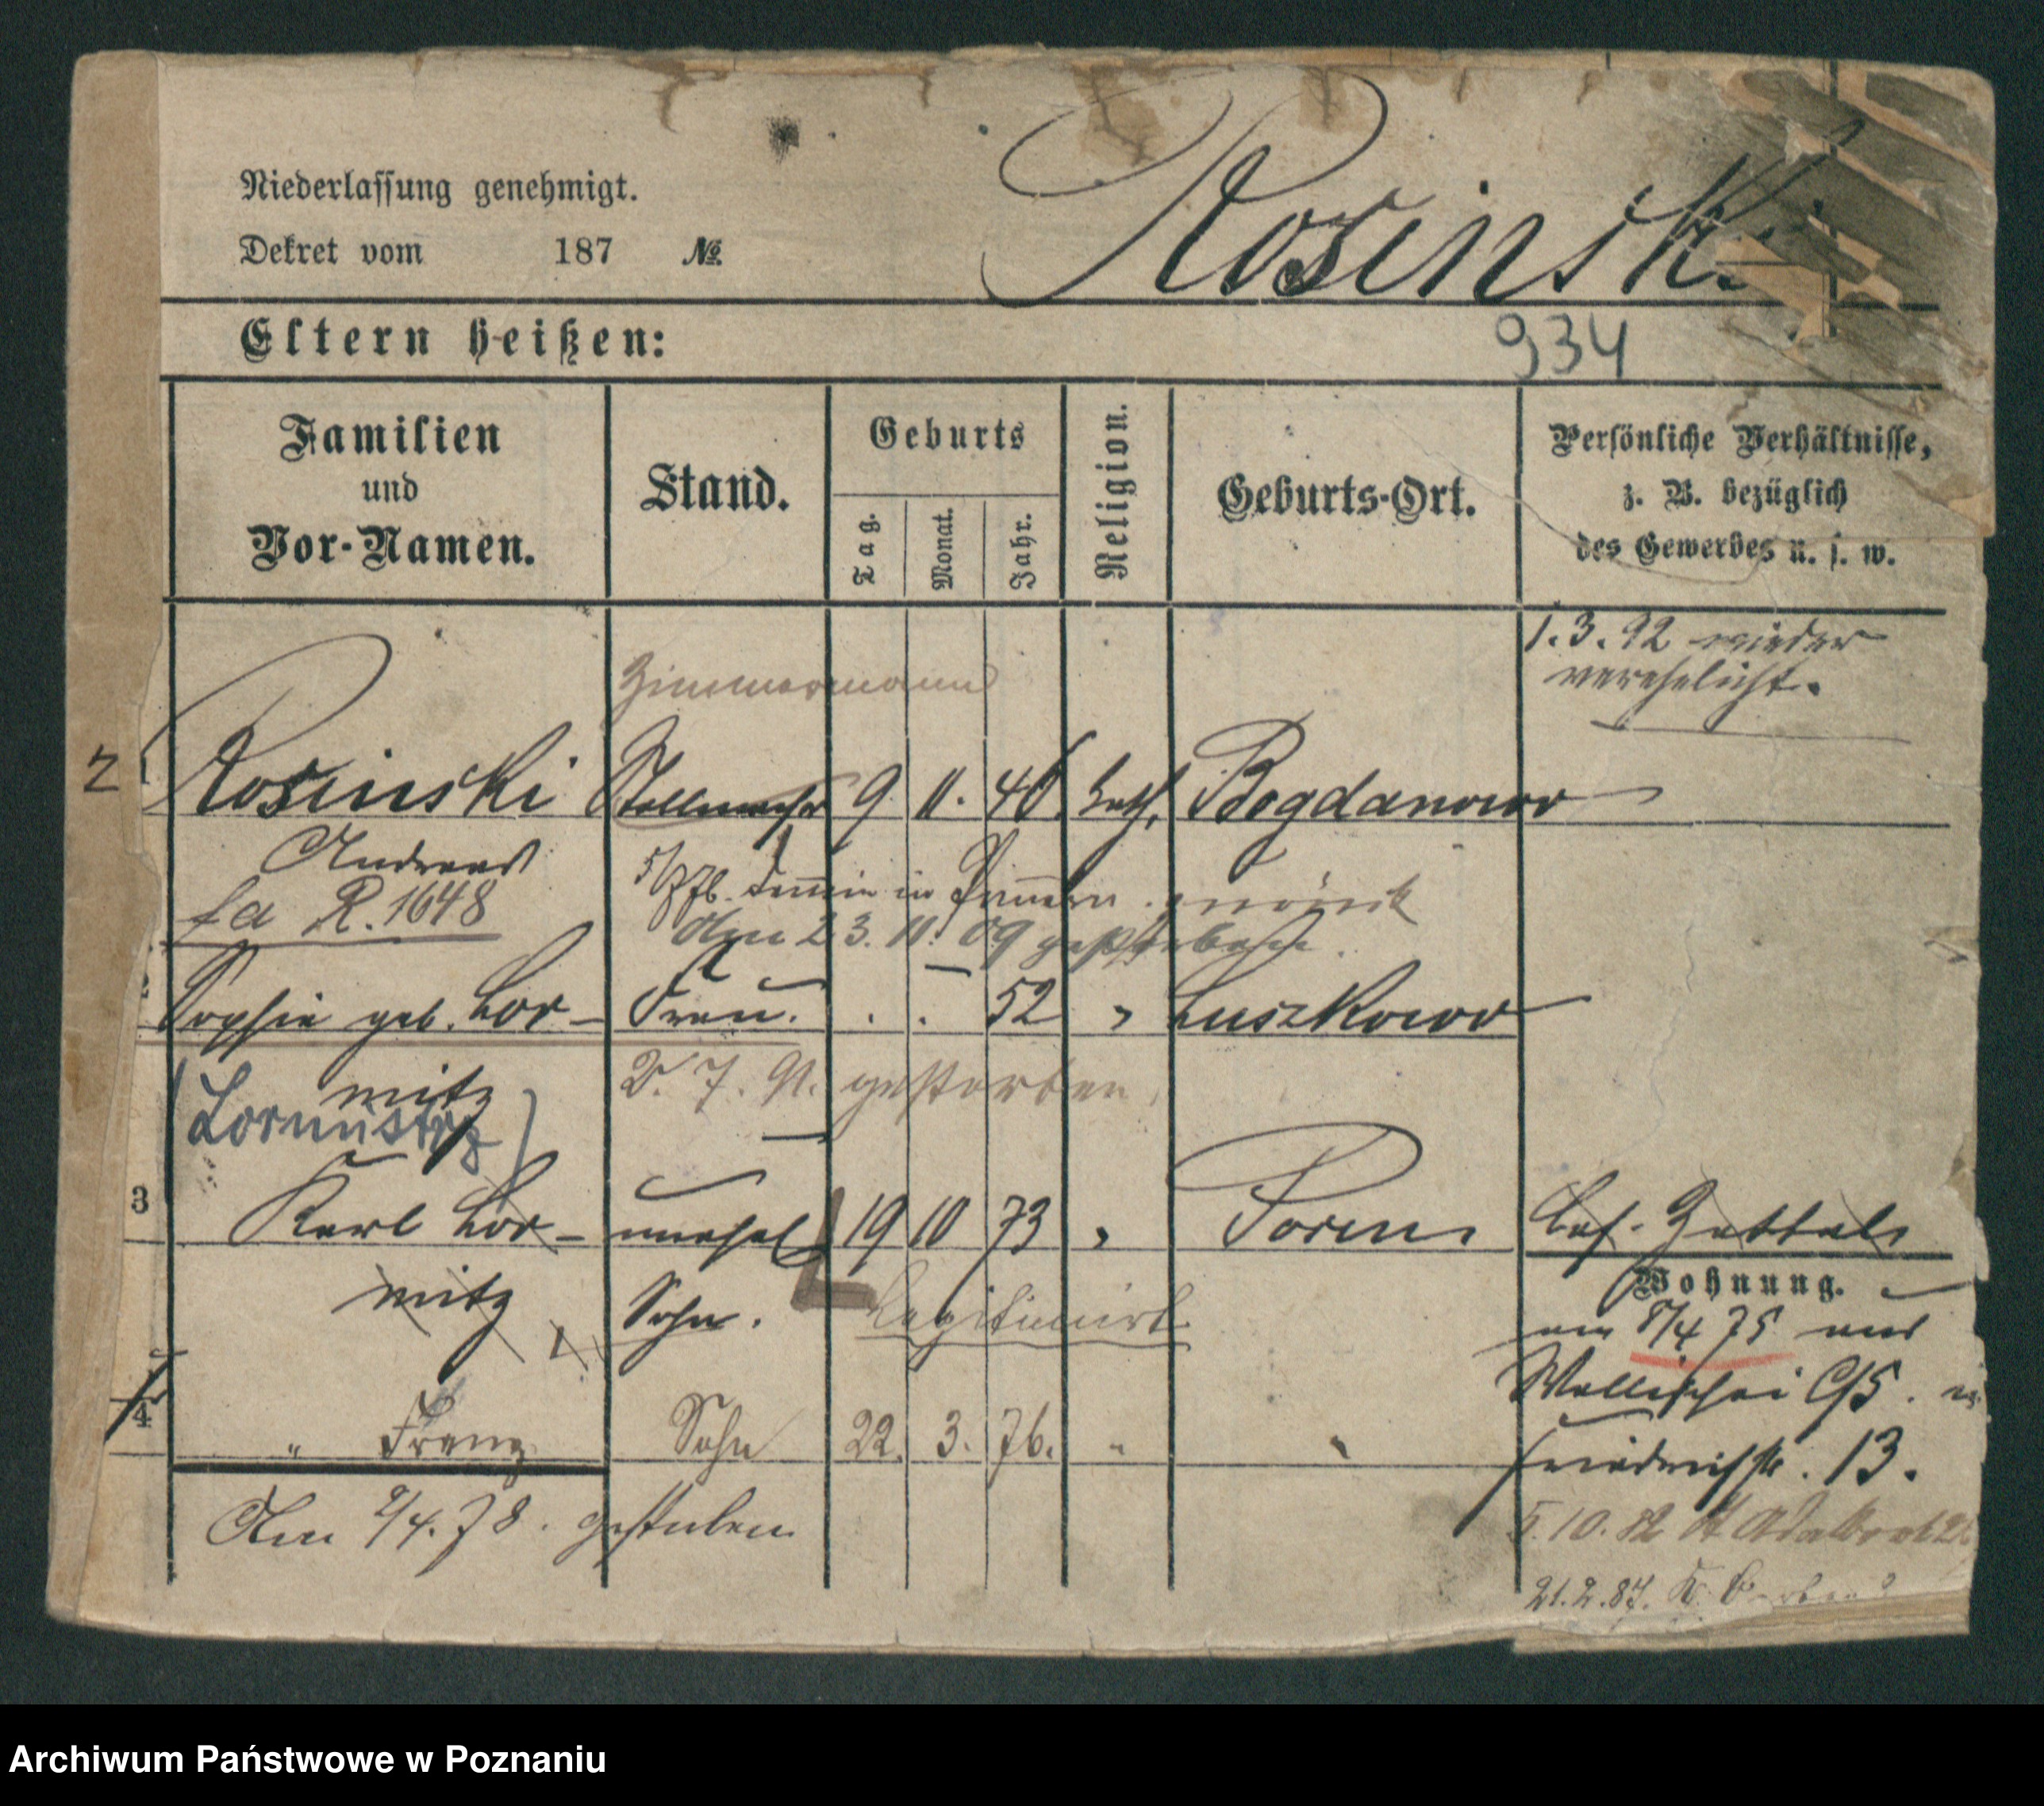 Niederlassung genehmigt.
Dekret vom 187 №
Rosinski
Eltern heißen:
934
Familien
und
Vor-Namen.
Stand.
Geburts
Tag.
Monat.
Jahr.
Religion.
Geburts-Ort.
Persönliche Verhältnisse,
z. B. bezüglich
des Gewerbes u. s. w.
1.3.92 wieder
verehelicht.
Zimmermann
2 Rosinski Stellmacher 9 11. 46. kath. Bogdanowo
Andreas
fa R. 1648
in
den 23. 11. 09 gestorben.
Sophie geb. Lor- Frau. . . 52 " Luszkowo
mitz
2. 7. 91. gestorben.
3 Karl Lor- unehel 19 10 73 " Posen
mitz Sohn. Legitimirt
Wohnung.
am 8/4 75 aus
Wallischei 95.
4 " Franz Sohn 22. 3. 76. " "
Friedrichstr. 13.
Am 2/4. 78. gestorben
5.10.82 St Adalbert
21.2.87.
Archiwum Państwowe w Poznaniu